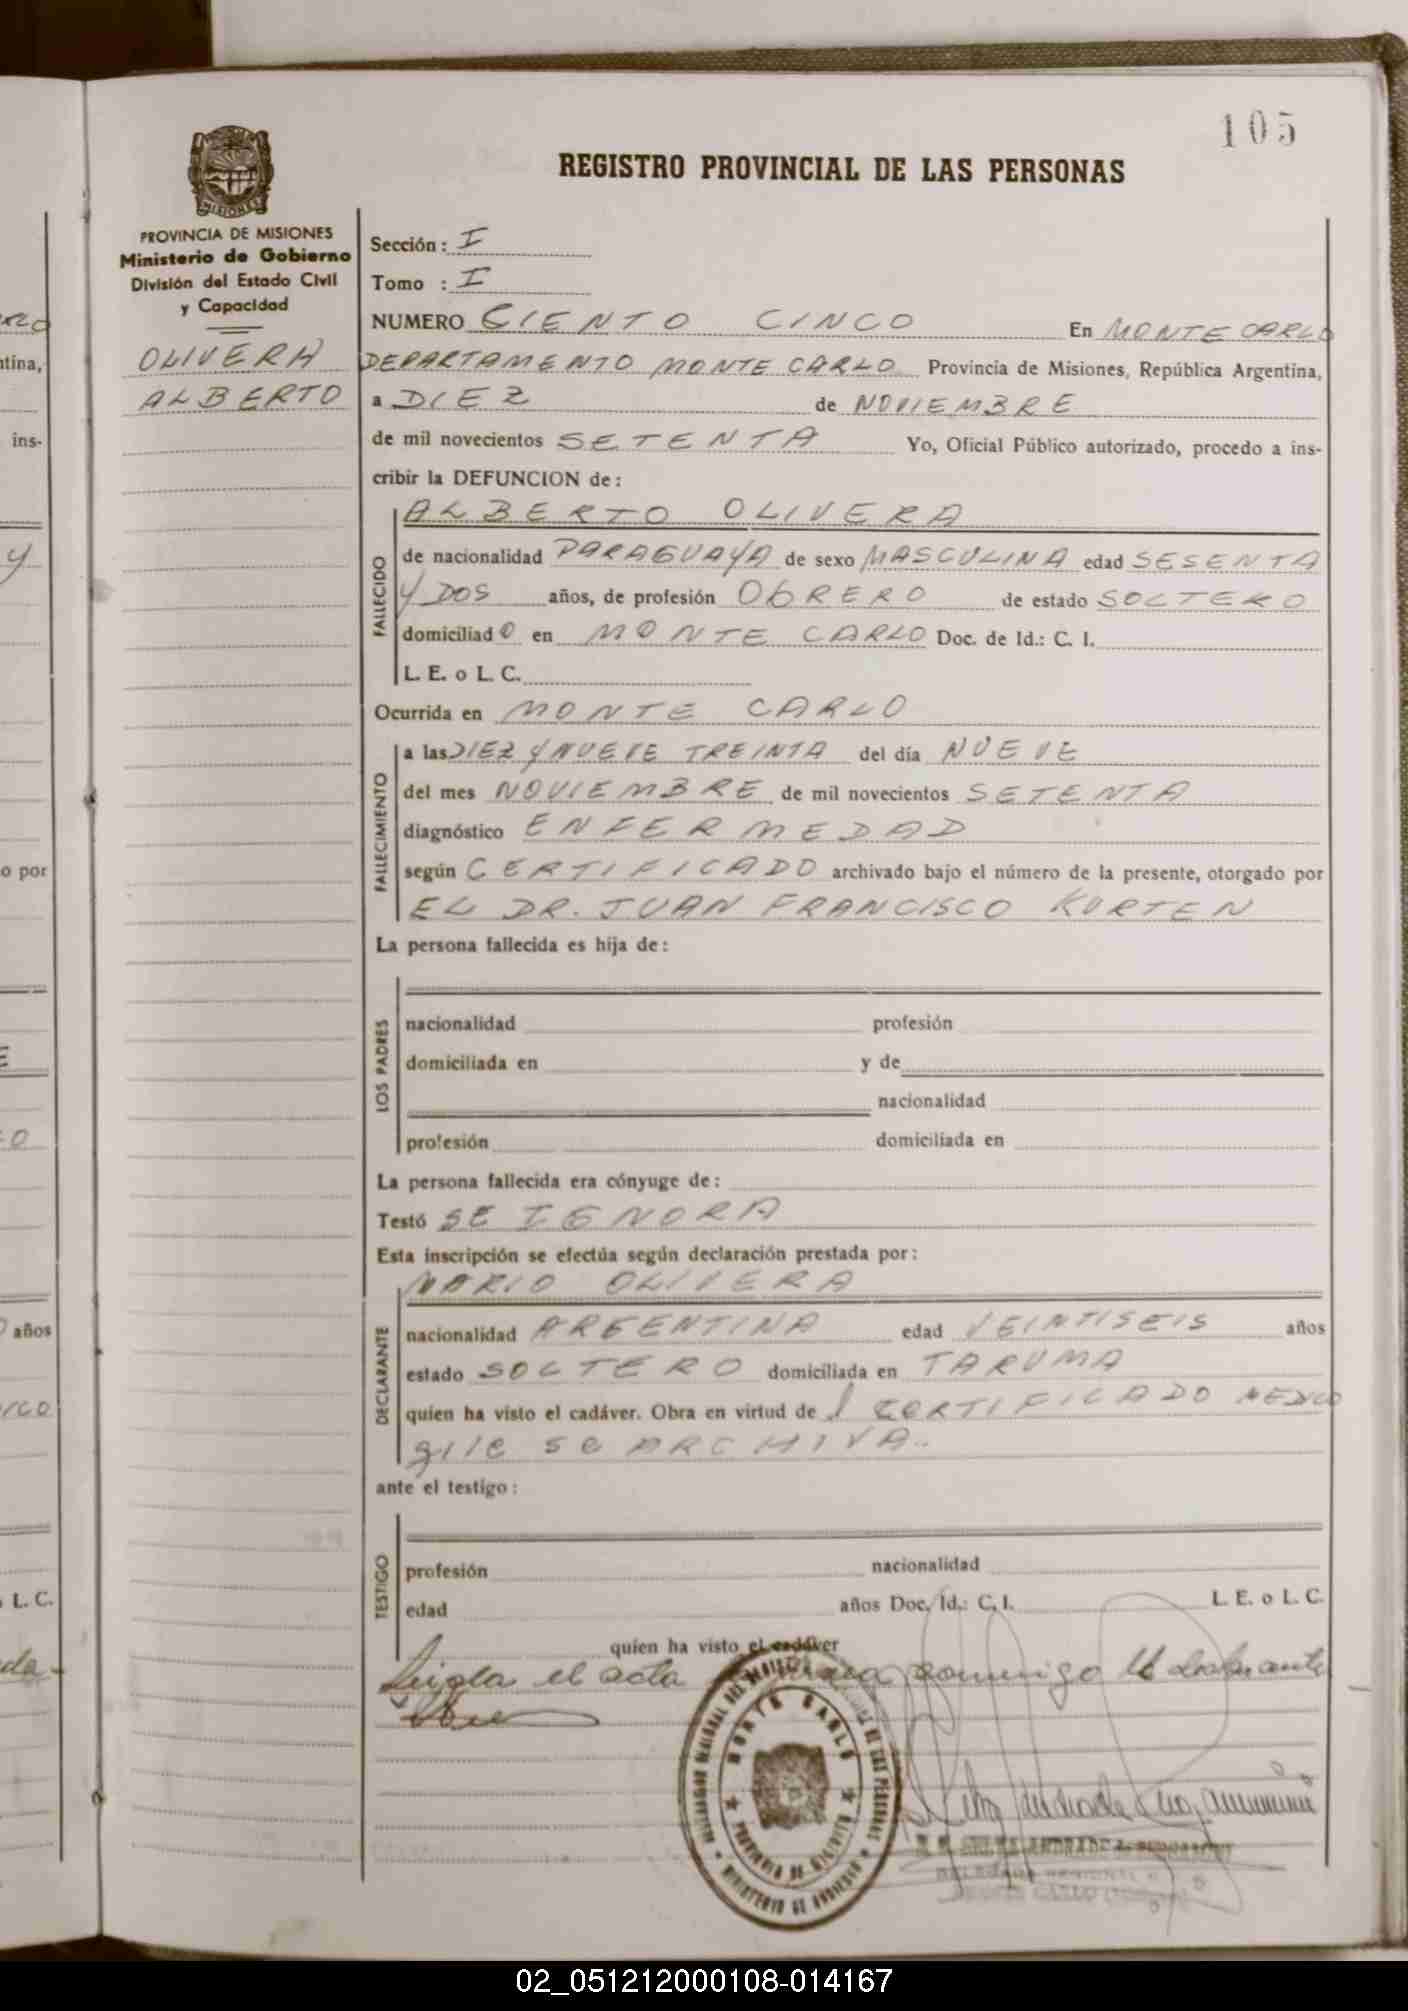 105
REGISTRO PROVINCIAL DE LAS PERSONAS
MISIONES
PROVINCIA DE MISIONES
Ministerio de Gobierno
División del Estado Civil
y Capacidad
OLIVERA
ALBERTO
Sección: I
Tomo : I
NUMERO CIENTO CINCO En MONTE CARLO
DEPARTAMENTO MONTE CARLO Provincia de Misiones, República Argentina,
a DIEZ de NOVIEMBRE
de mil novecientos SETENTA Yo, Oficial Público autorizado, procedo a ins-
cribir la DEFUNCION de:
FALLECIDO
ALBERTO OLIVERA
de nacionalidad PARAGUAYA de sexo MASCULINA edad SESENTA
Y DOS años, de profesión ObRERO de estado SOLTERO
domiciliado en MONTE CARLO Doc. de Id.: C. I.
L. E. o L. C.
Ocurrida en MONTE CARLO
FALLECIMIENTO
a las DIEZ Y NUEVE TREINTA del día NUEVE
del mes NOVIEMBRE de mil novecientos SETENTA
diagnóstico ENFERMEDAD
según CERTIFICADO archivado bajo el número de la presente, otorgado por
EL DR. JUAN FRANCISCO KURTEN
La persona fallecida es hija de:
LOS PADRES
nacionalidad profesión
domiciliada en y de
nacionalidad
profesión domiciliada en
La persona fallecida era cónyuge de:
Testó SE IGNORA
Esta inscripción se efectúa según declaración prestada por:
DECLARANTE
MARIO OLIVERA
nacionalidad ARGENTINA edad VEINTISEIS años
estado SOLTERO domiciliada en TARUMA
quien ha visto el cadáver. Obra en virtud del CERTIFICADO MEDICO
que se ARCHIVA.
ante el testigo:
TESTIGO
profesión nacionalidad
edad años Doc. Id.: C. I. L. E. o L. C.
quien ha visto el cadáver
el acta
MONTE CARLO
PROVINCIA DE MISIONES
MINISTERIO DE GOBIERNO
02_051212000108-014167